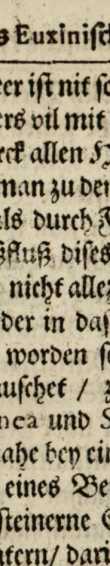 s Euxinisch
er ist nit so
ers vil mit
rck allen H
man zu dem
als durch
ßfluß dises
nicht alle
der in das
worden se
auschet / z
nea und S
ahe bey ein
eines Be
steinerne
ntern / dari